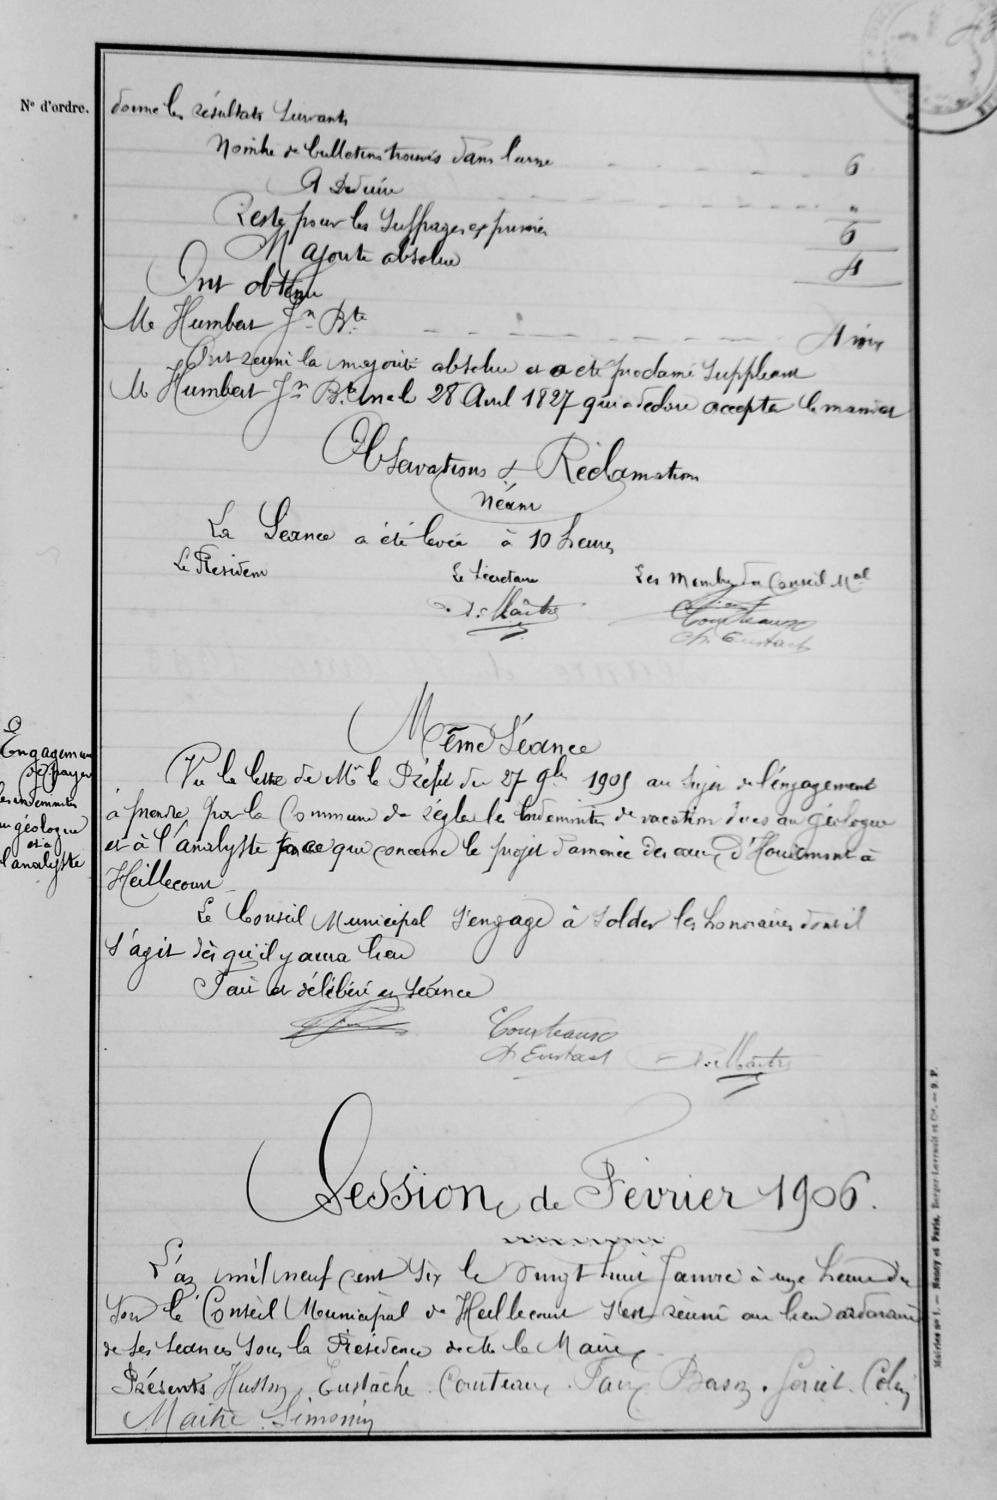 N° d'ordre.
donne les résultats suivants
Nombre de bulletins trouvés dans l'urne 6
A Déduire "
Reste pour les suffrages exprimés 6
Majorité absolue 4
Ont obtenu
Mr Humbert Jn Bte voix
Ont réuni la majorité absolue et a été proclamé Suppléant
M Humbert Jn Bte né le 28 Avril 1827 qui a déclaré accepter le mandat
Observations & Réclamations
Néant
La Séance a été levée à 10 heures
Le Président Le Secrétaire Les Membres du Conseil Mal
Maître Courteaux
Ch. Eustach
Même Séance
Engagement
de payer
les indemnités
au géologue
et à
l'analyste
Vu la lettre de Mr le Préfet du 27 9bre 1905 au sujet de l'engagement
à prendre par la Commune de régler les Indemnités de vacation dues au géologue
et à l'analyste pour ce qui concerne le projet d'amenée des eaux d'Houdemont à
Heillecourt
Le Conseil Municipal s'engage à solder les honoraires dont il
s'agit dès qu'il y aura lieu
Fait et délibéré en séance
Courteaux
Ch Eustach Maître
Session de Février 1906.
L'an mil neuf cent six le vingt huit Janvier à onze heures du
le Conseil Municipal de Heillecourt s'est réuni au lieu ordinaire
de ses séances sous la Présidence de Mr le Maire
Présents Husson, Eustache. Courteaux. Basor. Coly
Maitre. Simonin
Mairies n° 1. — Nancy et Paris, Berger-Levrault et Cie. — 9. P.